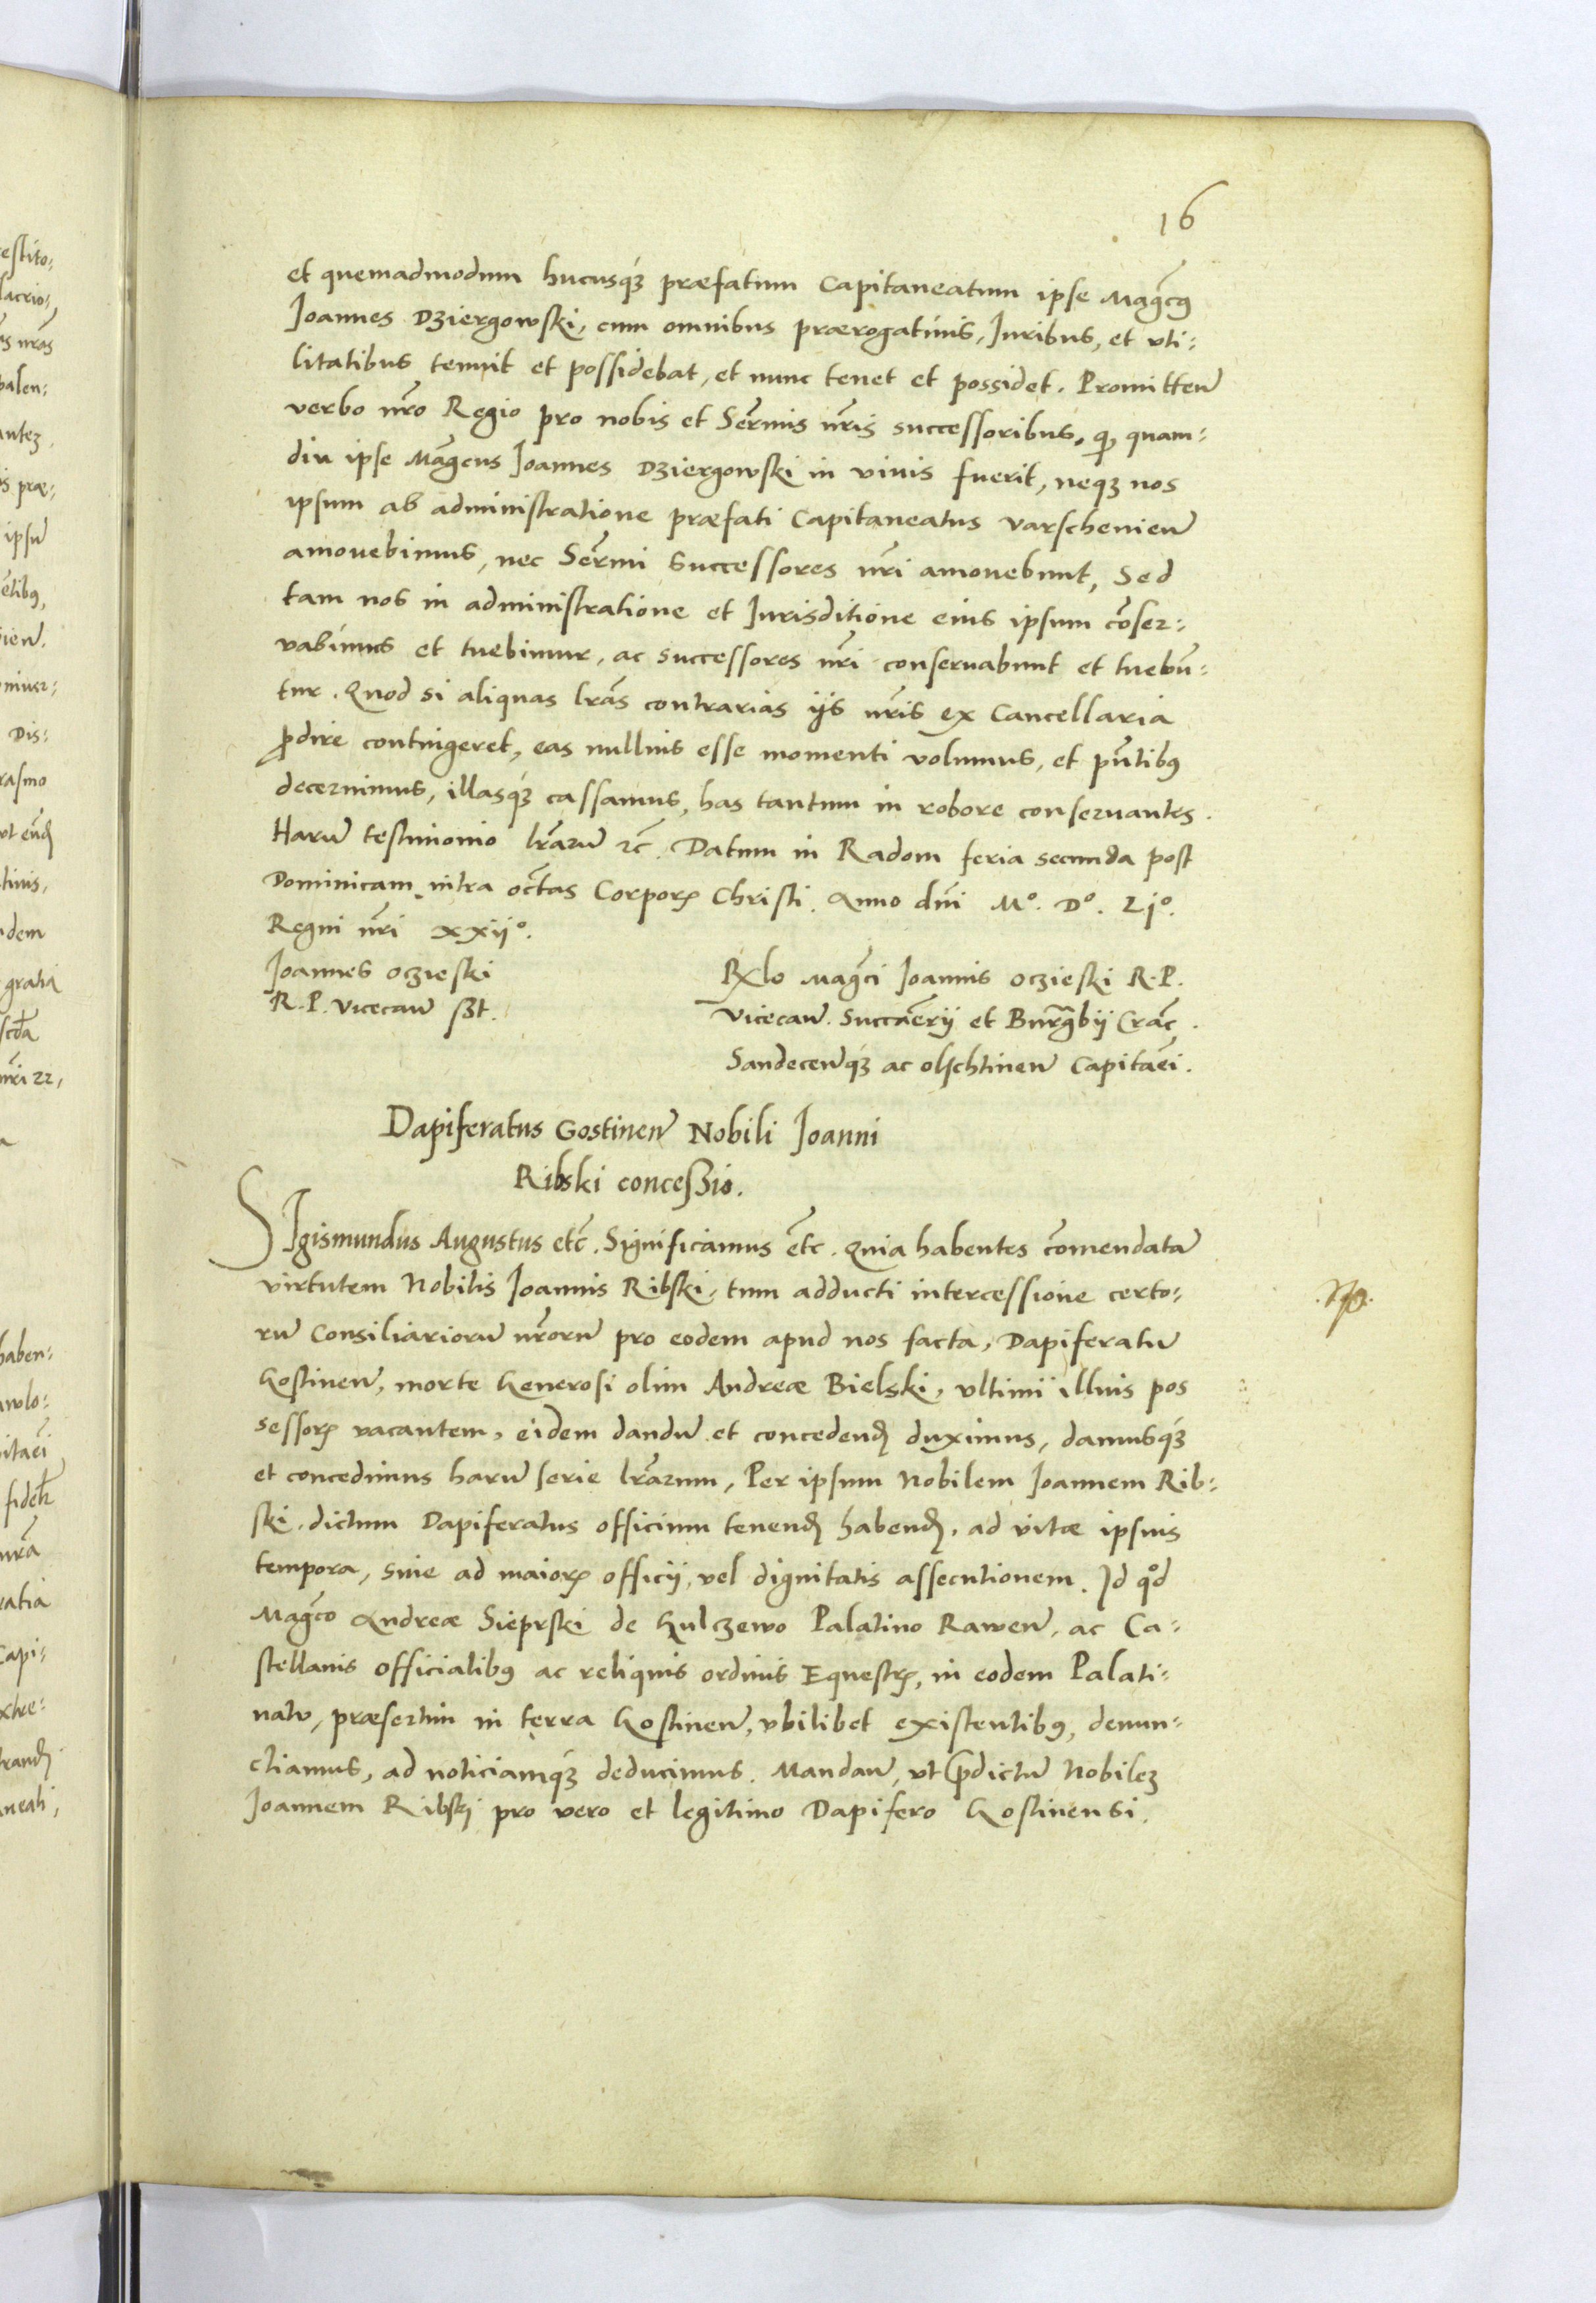 16
et quemadmodum hucusq́ꝫ præfatum Capitaneatum ipse Magc̃ꝰ
Joannes Dziergowski, cum omnibus prærogatiuis, Juribus, et vti-
litatibus tenuit et possidebat, et nunc tenet et possidet. Promitteñ
verbo nr̃o Regio pro nobis et Ser̃mis nr̃is successoribus, ꝙ quam-
diu ipse Mag̃cus Joannes Dziergowski in viuis fuerit, neqꝫ nos
ipsum ab administratione præfati Capitaneatus varscheuieñ
amouebimus, nec Ser̃mi Successores nr̃i amouebunt, Sed
tam nos in administratione et Jurisditione eius ipsum cõser-
vabimus et tuebimur, ac successores nr̃i conseruabunt et tuebũ-
tur. Quod si aliquas lr̃as contrarias ijs nr̃is ex Cancellaria
ꝓdire contingeret, eas nullius esse momenti volumus, et pñtibꝰ
decernimus, illasq́ꝫ cassamus, has tantum in robore conseruantes.
Harũ testimonio lr̃arũ ꝛc̃. Datum in Radom feria secunda post
Dominicam intra oct̃as Corporꝭ Christi. Anno dñi Mº. Dº. Ljº.
Regni nr̃i xxijº.
Joannes oczieski
R. P. Vicecañ sszt.
Rẽlo Mag̃ci Joannis oczieski R. P.
Vicecañ. Succam̃erij et Burg̃bij Crac̃.
Sandeceñq́ꝫ ac olschtineñ Capitan̄ei.
Dapiferatus Gostineñ Nobili Joanni
Ribski concessio.
SJgismundus Augustus etc̃. Significamus etc̃. Quia habentes cõmendatã
virtutem Nobilis Joannis Ribski, tum adducti intercessione certo-
rũ Consiliariorũ nr̃orũ pro eodem apud nos facta, Dapiferatũ
Gostineñ, morte Generosi olim Andreæ Bielski, vltimi illius pos
sessorꝭ vacantem, eidem dandũ et concedendꝭ duximus, damusq́ꝫ
et concedimus harũ serie lr̃arum, Per ipsum Nobilem Joannem Rib-
ski, dictum Dapiferatus officium tenendꝭ habendꝭ, ad vitæ ipsius
tempora, siue ad maiorꝭ officij, vel dignitatis assecutionem. Jd qͦd
Mag̃co Andreæ Sieprski de Gulczewo Palatino Raweñ, ac Ca-
stellanis officialibꝰ ac reliquis ordinis Equestrꝭ, in eodem Palati-
natu, præsertim in terra Gostineñ, vbilibet existentibꝰ, denun-
ctiamus, ad noticiamq́ꝫ deducimus. Mandañ, vt p̃dictũ Nobileꝫ
Joannem Ribski pro vero et legitimo Dapifero Gostinensi.